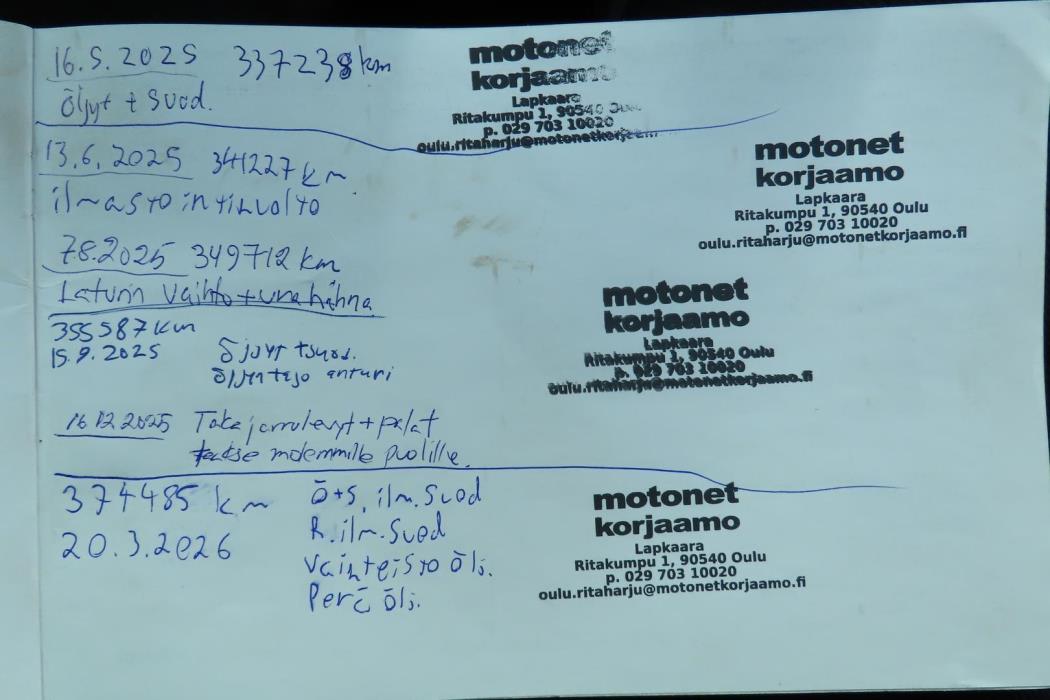 16.5.2025 337238 km
öljyt + suod.
motonet
korjaamo
Lapkaara
Ritakumpu 1, 90540 Oulu
p. 029 703 10020
oulu.ritaharju@motonetkorjaamo.fi
13.6.2025 341227 km
ilmastointihuolto
motonet
korjaamo
Lapkaara
Ritakumpu 1, 90540 Oulu
p. 029 703 10020
oulu.ritaharju@motonetkorjaamo.fi
7.8.2025 349712 km
Laturin vaihto + urahihna
motonet
korjaamo
Lapkaara
Ritakumpu 1, 90540 Oulu
p. 029 703 10020
oulu.ritaharju@motonetkorjaamo.fi
355587 km
15.9.2025 öljyt + suod.
anturi
16.12.2025 Takajarrulevyt + palat
molemmille puolille.
374485 km
20.3.2026
ö+s, ilm. suod
R.ilm.suod
Vaihteisto ölj.
Perä ölj.
motonet
korjaamo
Lapkaara
Ritakumpu 1, 90540 Oulu
p. 029 703 10020
oulu.ritaharju@motonetkorjaamo.fi